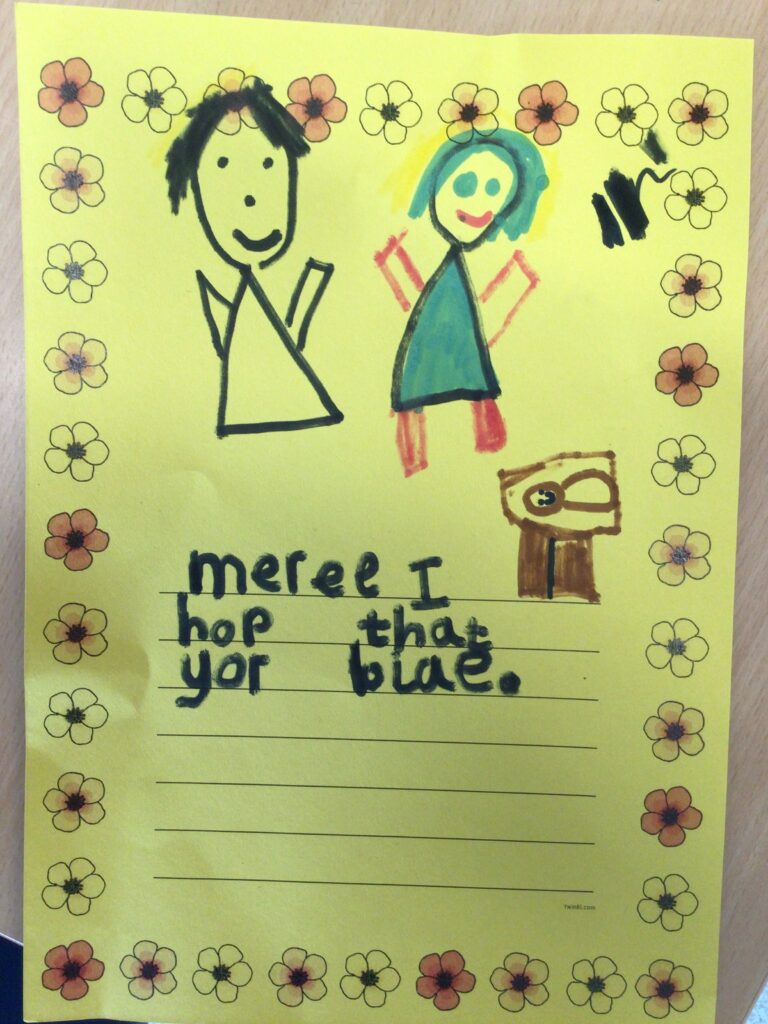 meree I
hop that
yor blae.
twinkl.com